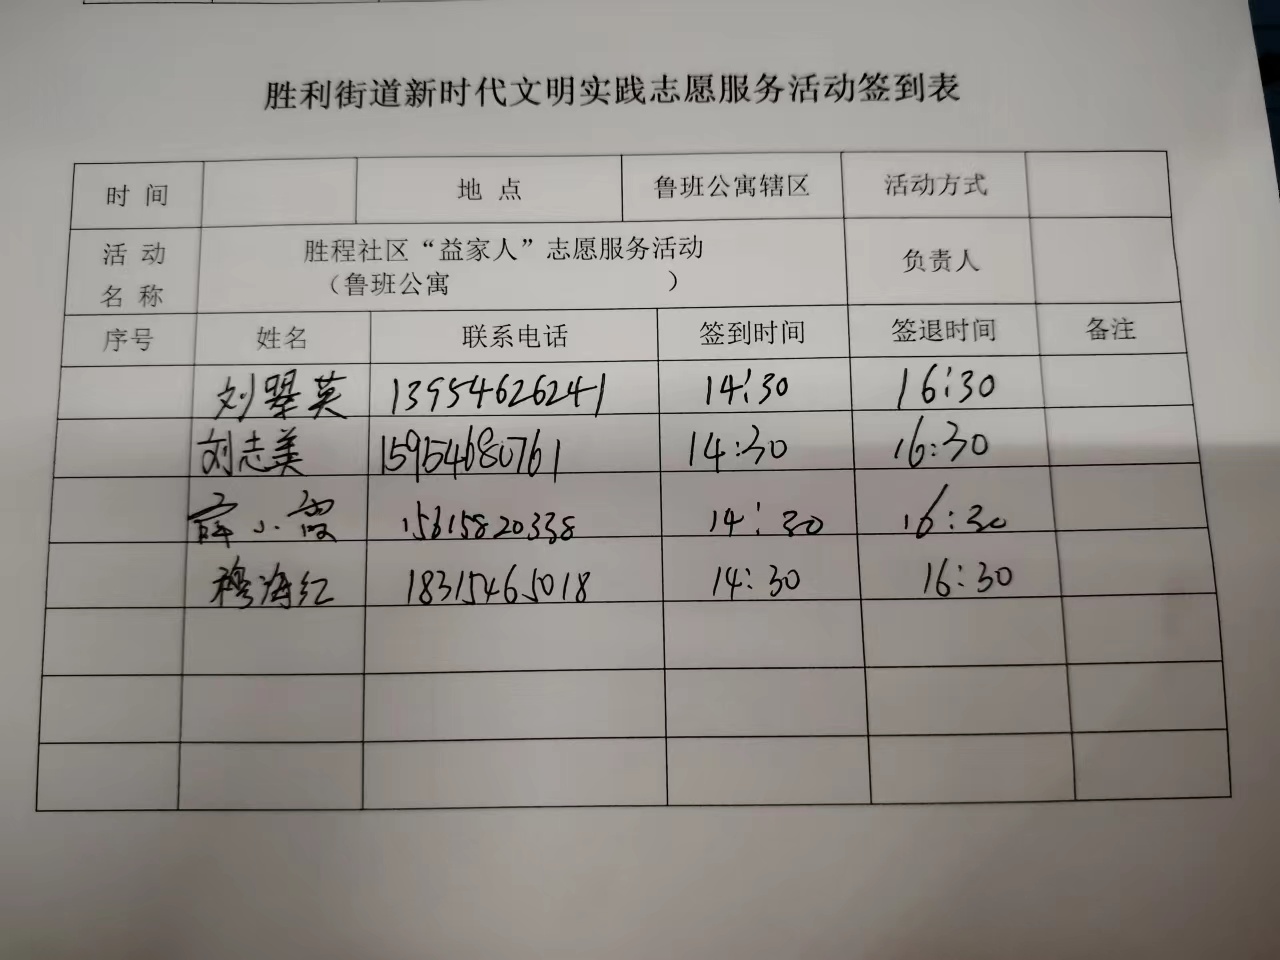 胜利街道新时代文明实践志愿服务活动签到表
时 间 地 点 鲁班公寓辖区 活动方式
活 动 名 称 胜程社区“益家人”志愿服务活动 负责人
（鲁班公寓 ）
序号 姓名 联系电话 签到时间 签退时间 备注
刘翠英 13954626241 14:30 16:30
刘志美 15954680761 14:30 16:30
薛小霞 15615820338 14:30 16:30
穆海红 18315465018 14:30 16:30